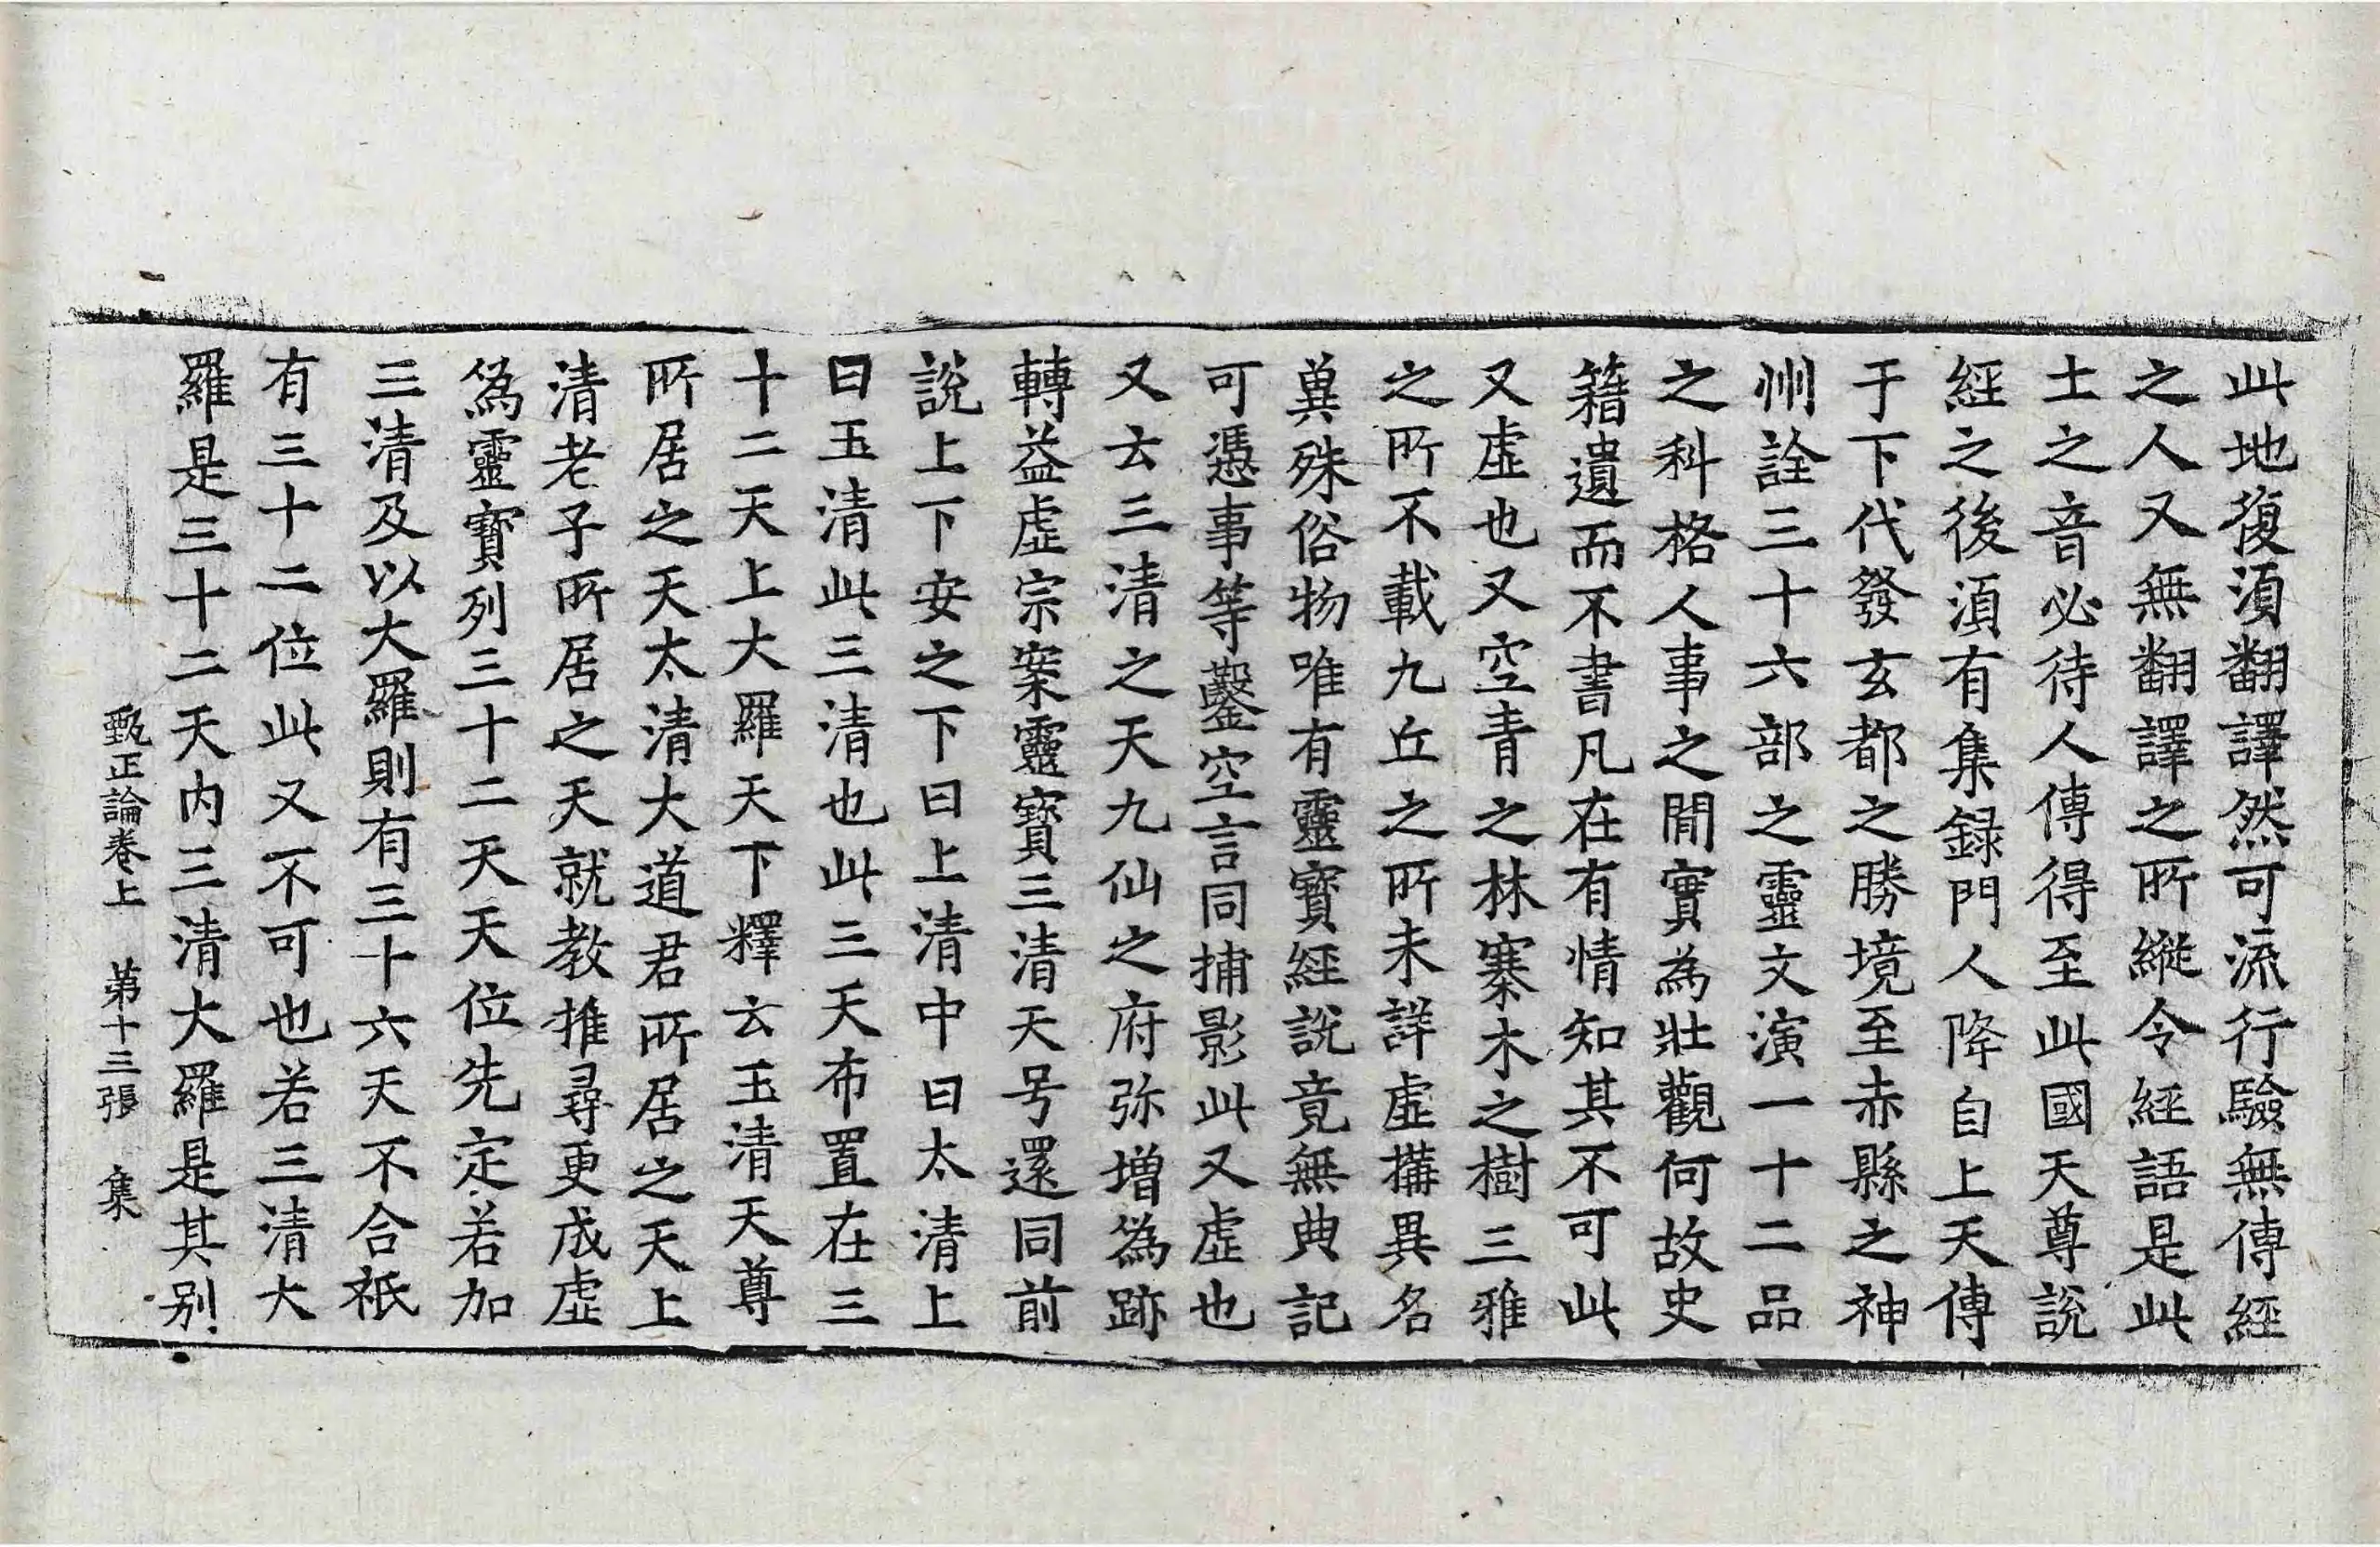 此地復湏翻譯然可流行驗無傳經
之人又無翻譯之所縱令經語是此
土之音必待人傳得至此國天尊說
經之後湏有集録門人降自上天傳
于下代發玄都之勝境至赤縣之神
州詮三十六部之靈文演一十二品
之科格人事之閒實為壯觀何故史
籍遺而不書凡在有情知其不可此
又虛也又空青之林寨木之樹三雅
之所不載九丘之所未詳虛搆異名
兾殊俗物唯有靈寶經說竟無典記
可憑事等鑿空言同捕影此又虛也
又云三清之天九仙之府弥增為跡
轉益虛宗案靈寶三清天号還同前
說上下安之下曰上清中曰太清上
曰玉清此三清也此三天布置在三
十二天上大羅天下釋云玉清天尊
所居之天太清大道君所居之天上
清老子所居之天就教推尋更成虛
爲靈寶列三十二天天位先定若加
三清及以大羅則有三十六天不合祇
有三十二位此又不可也若三清大
羅是三十二天内三清大羅是其别
甄正論卷上　第十三張　集